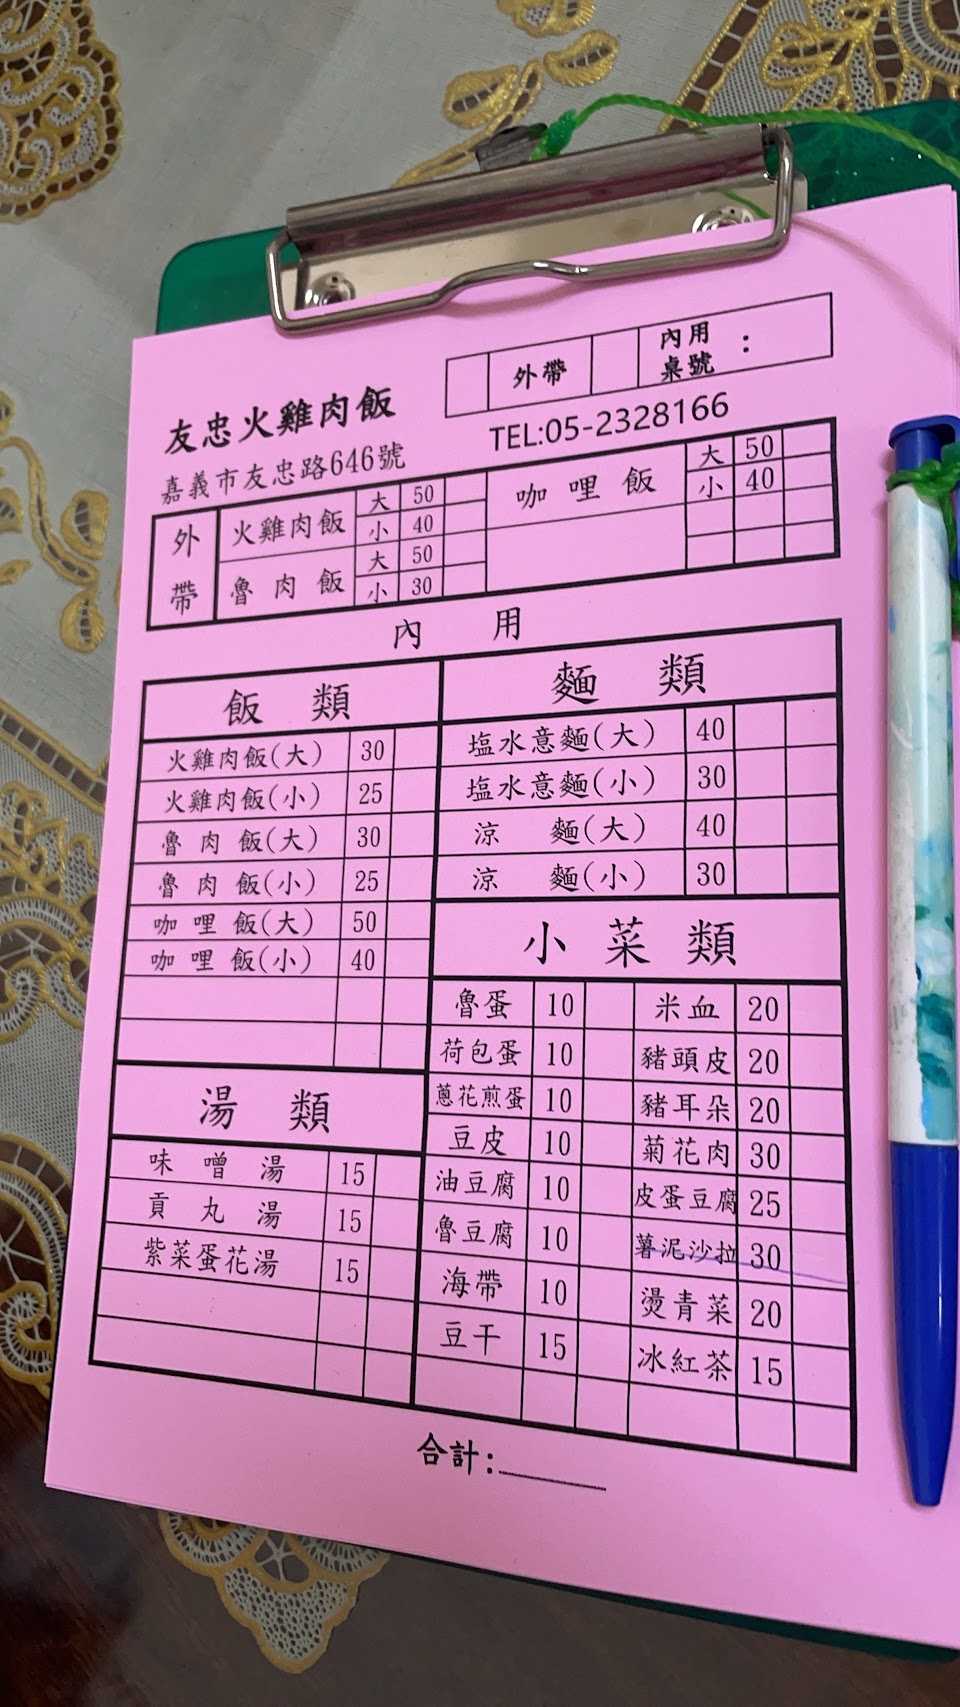 外帶 內用桌號：
友忠火雞肉飯
TEL:05-2328166
嘉義市友忠路646號
外帶 火雞肉飯 大 50 咖哩飯 大 50
小 40 小 40
魯肉飯 大 50
小 30
內用
飯類
火雞肉飯(大) 30
火雞肉飯(小) 25
魯肉飯(大) 30
魯肉飯(小) 25
咖哩飯(大) 50
咖哩飯(小) 40
湯類
味噌湯 15
貢丸湯 15
紫菜蛋花湯 15
麵類
塩水意麵(大) 40
塩水意麵(小) 30
涼麵(大) 40
涼麵(小) 30
小菜類
魯蛋 10 米血 20
荷包蛋 10 豬頭皮 20
蔥花煎蛋 10 豬耳朵 20
豆皮 10 菊花肉 30
油豆腐 10 皮蛋豆腐 25
魯豆腐 10 薯泥沙拉 30
海帶 10 燙青菜 20
豆干 15 冰紅茶 15
合計: